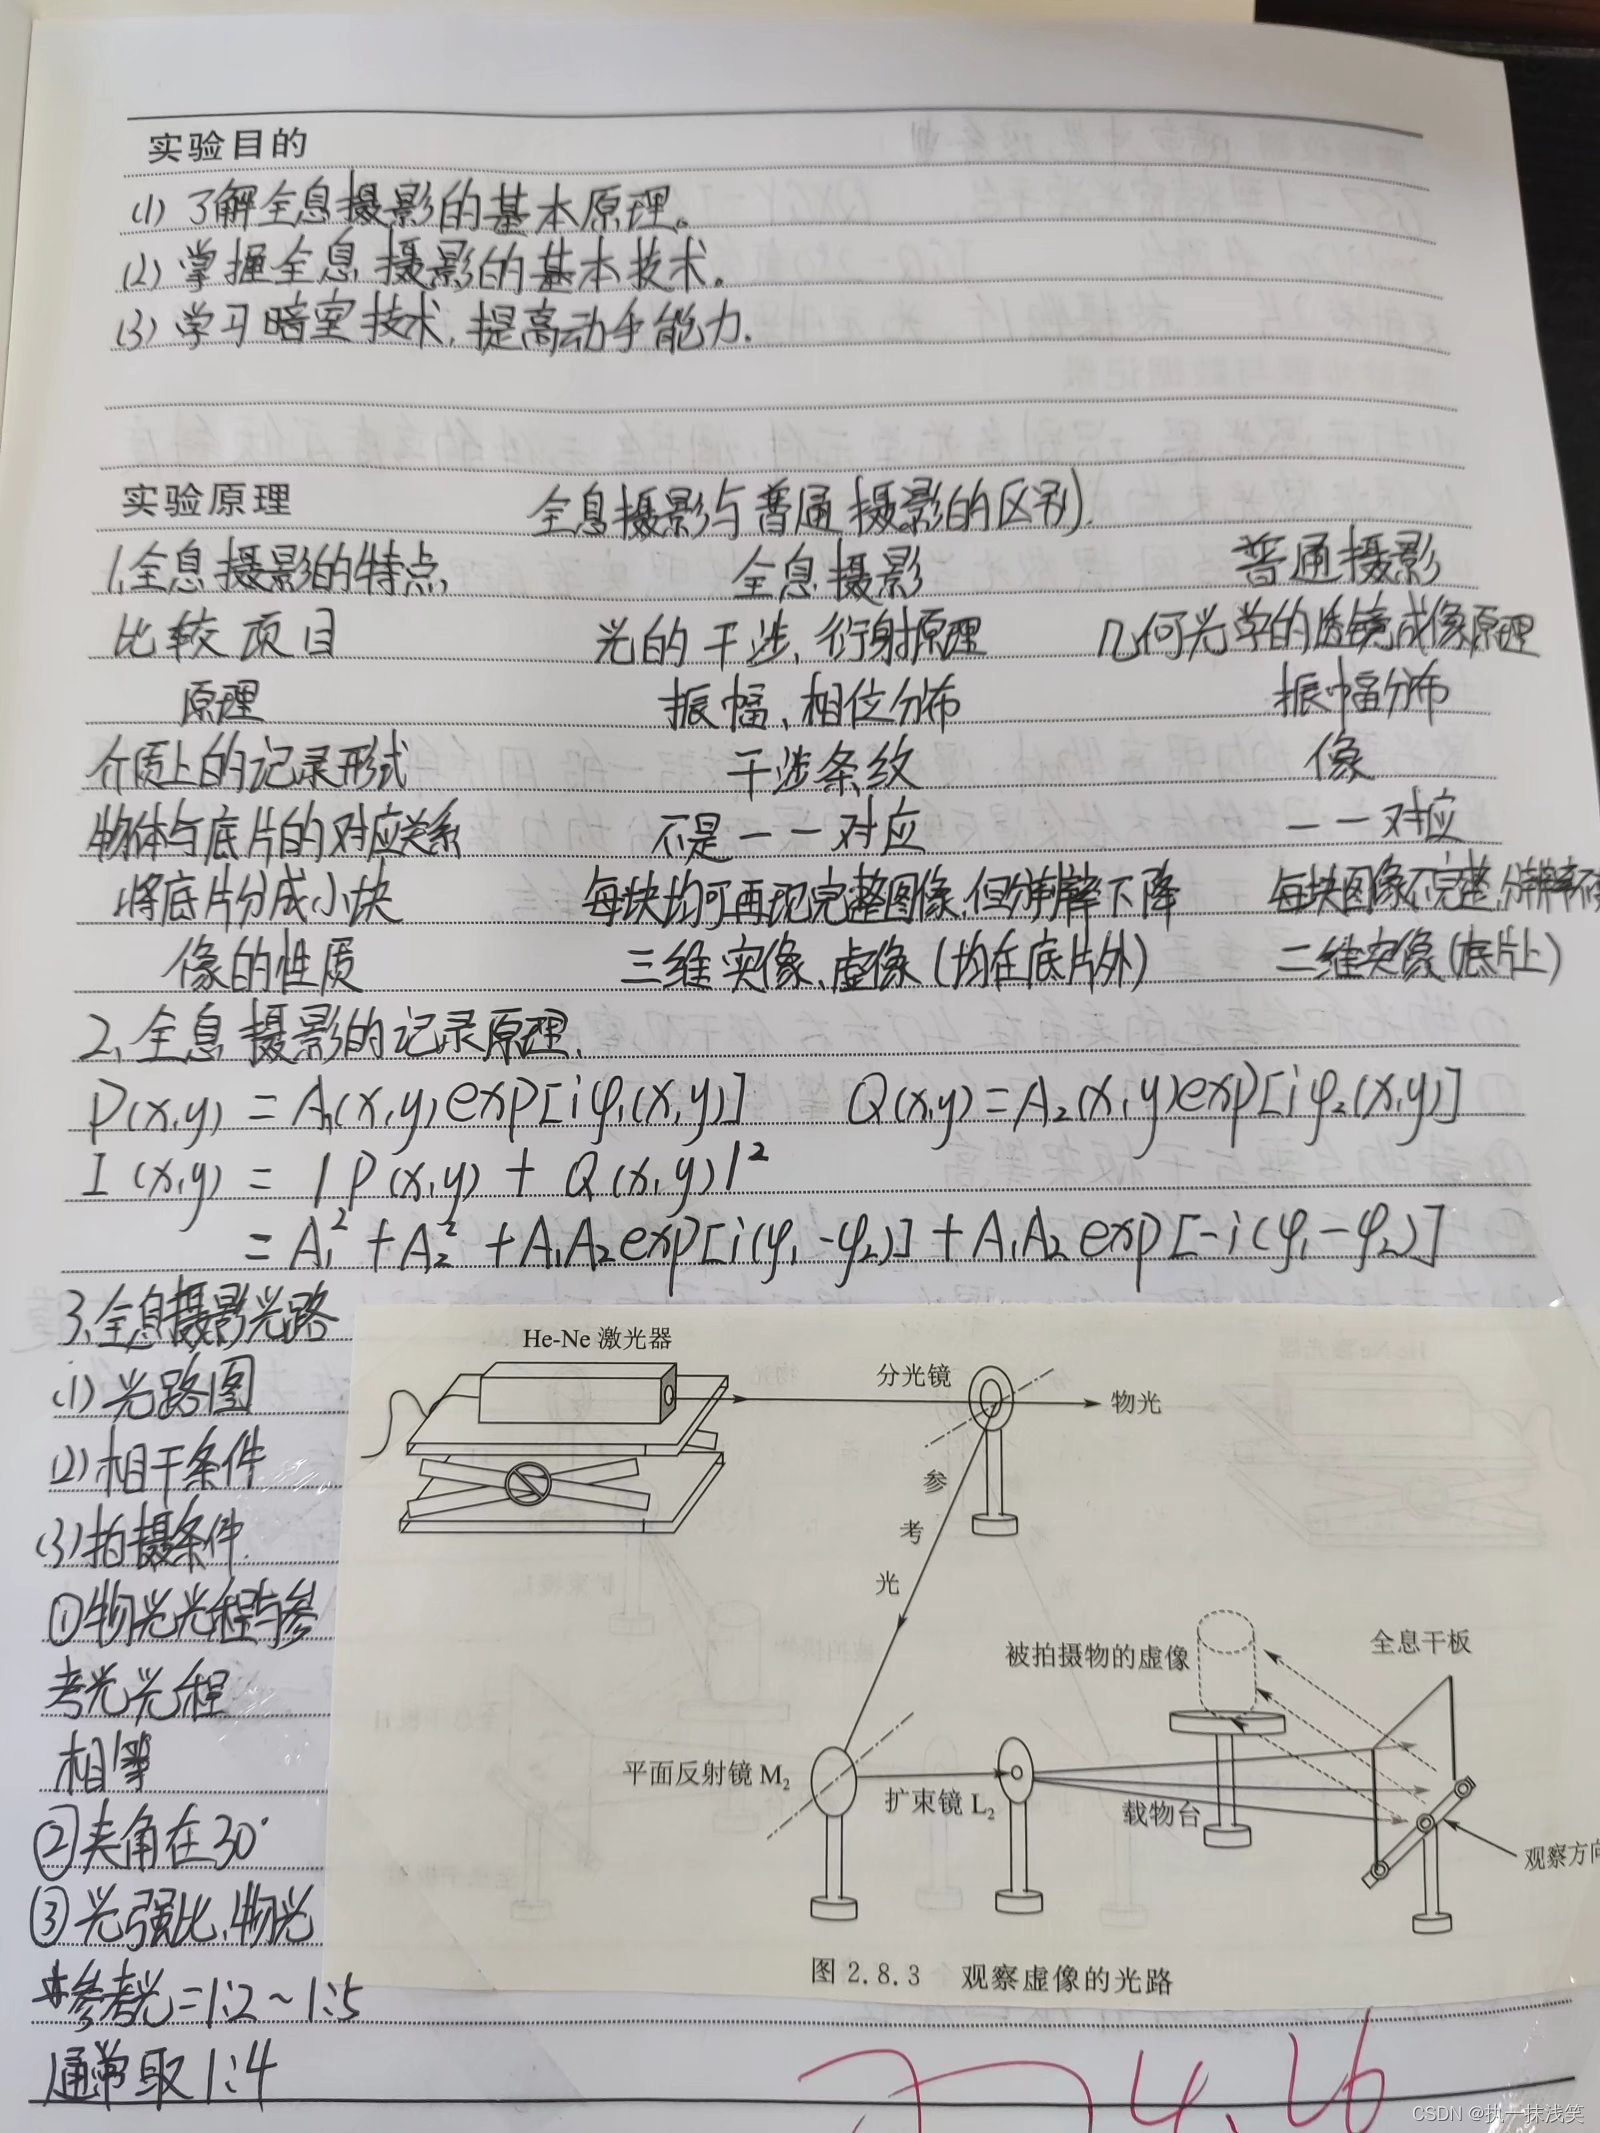 实验目的
(1) 了解全息摄影的基本原理。
(2) 掌握全息摄影的基本技术。
(3) 学习暗室技术,提高动手能力.
实验原理 全息摄影与普通摄影的区别).
1.全息摄影的特点. 全息摄影 普通摄影
比较项目 光的干涉、衍射原理 几何光学的透镜成像原理
原理 振幅、相位分布 振幅分布
介质上的记录形式 干涉条纹 像
物体与底片的对应关系 不是一一对应 一一对应
将底片分成小块 每块均可再现完整图像,但分辨率下降 每块图像不完整,分辨率不
像的性质 三维实像、虚像(均在底片外) 二维实像(底片上)
2、全息摄影的记录原理.
P(x,y) = A₁(x,y)exp[iφ₁(x,y)] Q(x,y)=A₂(x,y)exp[iφ₂(x,y)]
I (x,y) = |P(x,y) + Q(x,y)|²
= A₁² + A₂² + A₁A₂exp[i(φ₁-φ₂)] + A₁A₂ exp[-i(φ₁-φ₂)]
3.全息摄影光路
(1) 光路图
(2) 相干条件
(3) 拍摄条件.
①物光光程与参
考光光程
相等
②夹角在30°
③光强比、物光
参考光=1:2~1:5
通常取1:4
He-Ne 激光器
分光镜
物光
参考光
被拍摄物的虚像
全息干板
平面反射镜 M₂
扩束镜 L₂
载物台
观察方向
图 2.8.3 观察虚像的光路
4.26
CSDN @执一抹浅笑